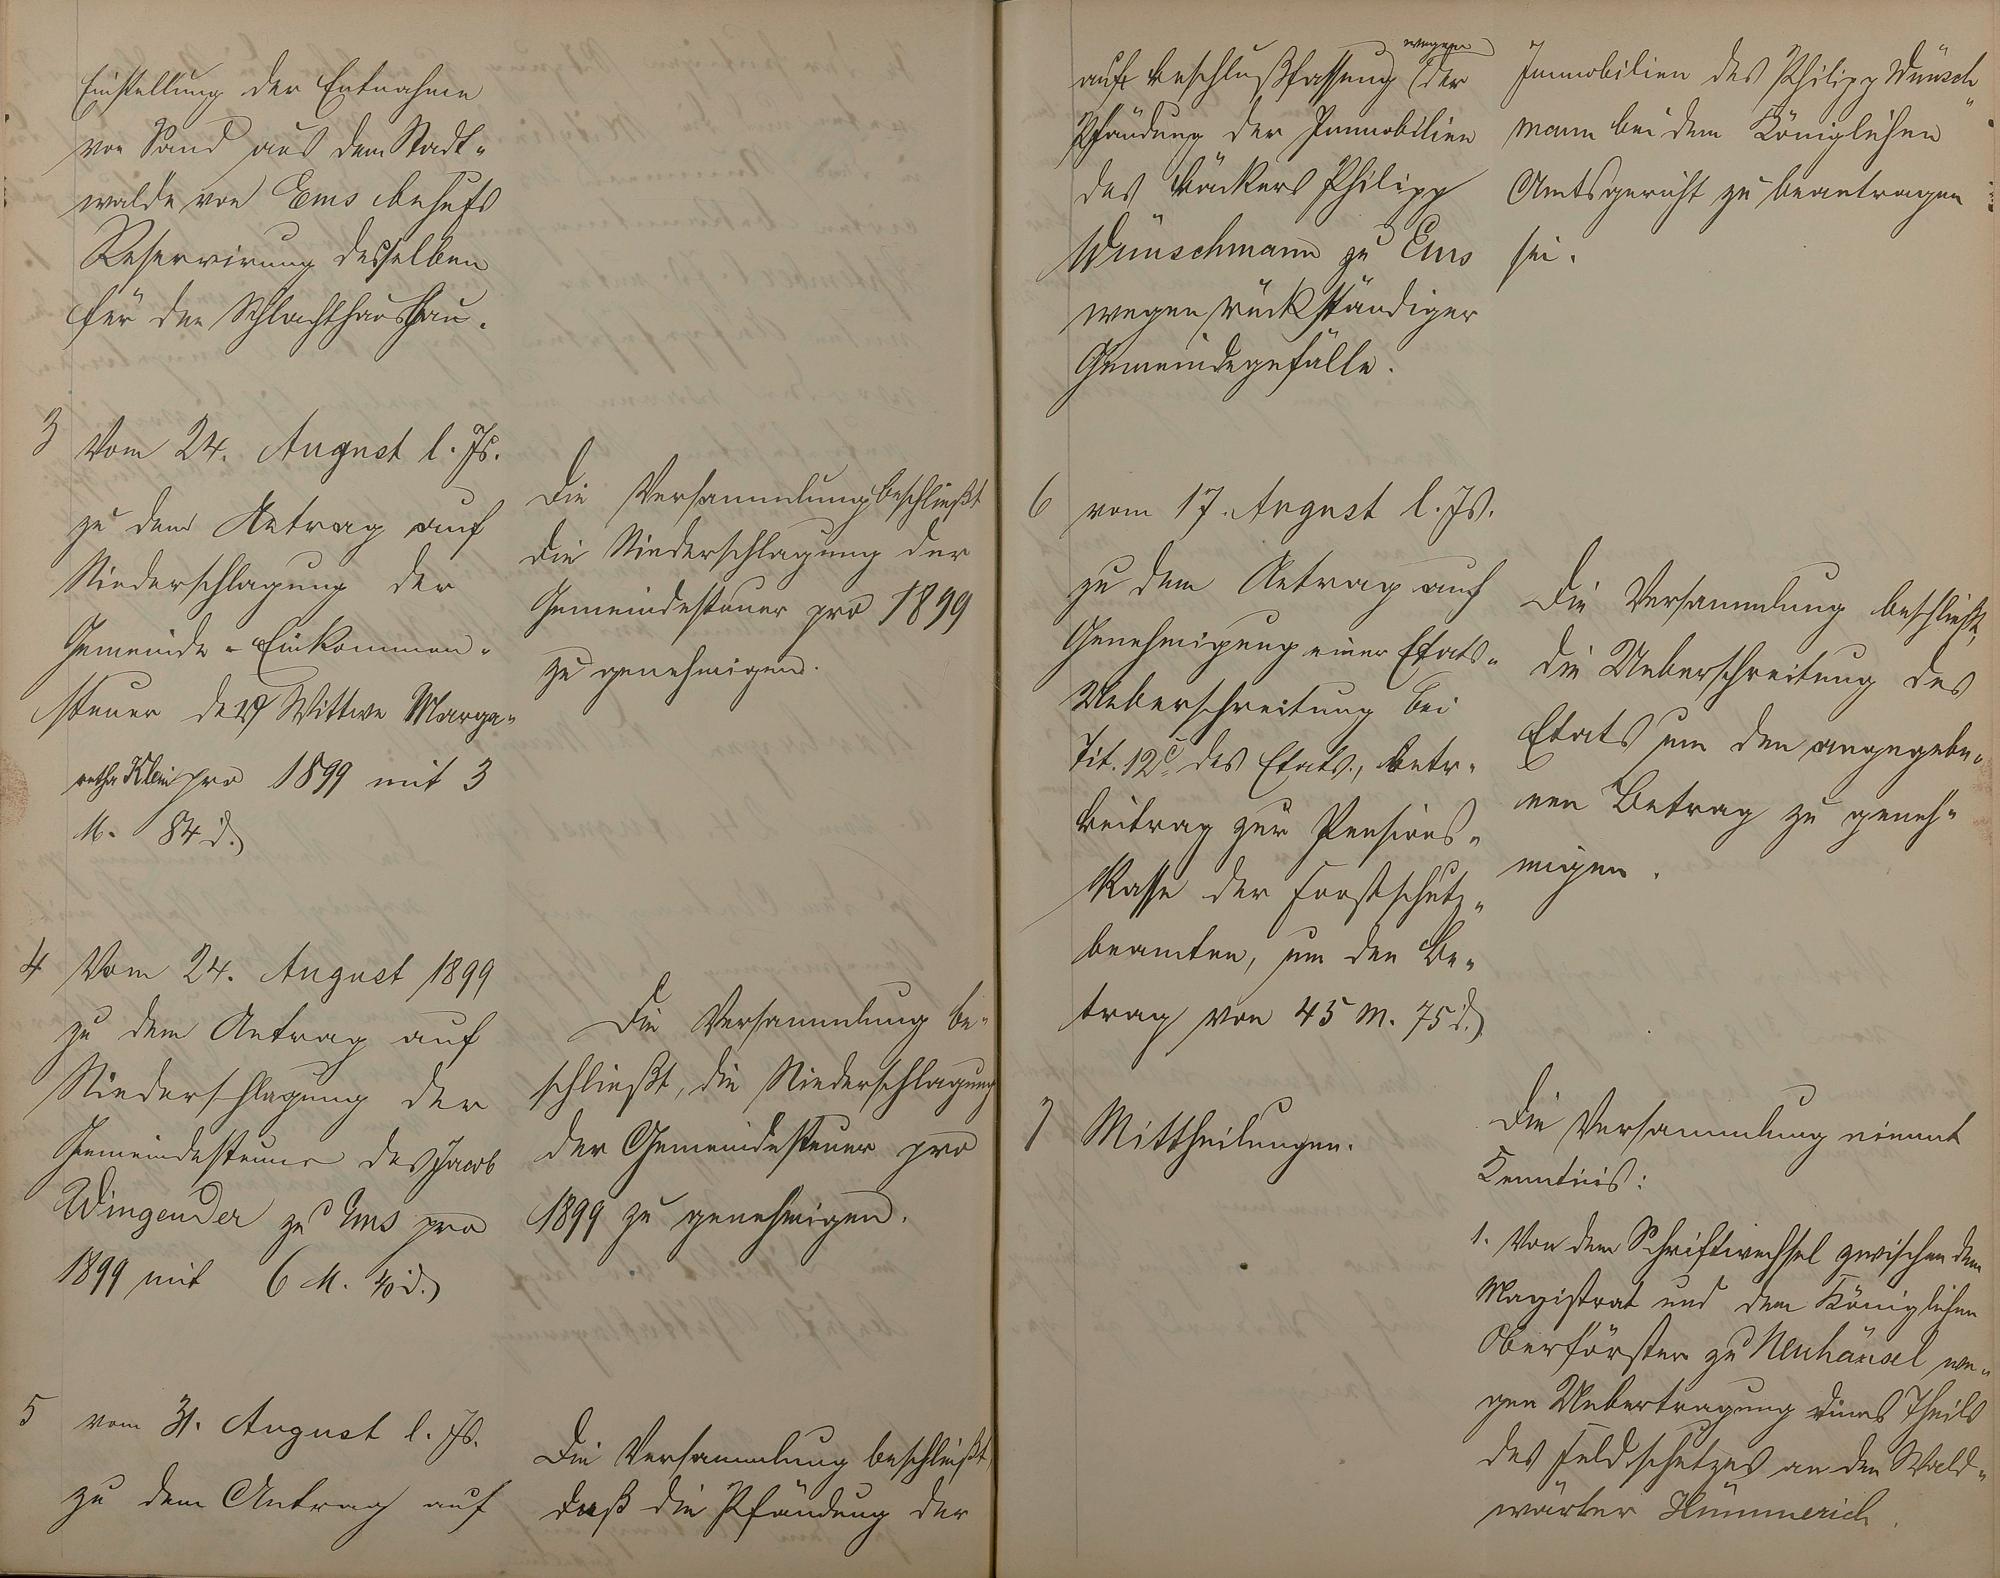 Einstellung der Entnahme
von Sand aus dem Stadt-
walde von Ems behufs
Reservirung desselben
für den Schlachthausbau.
3 Vom 24. August l. Js.
zu dem Antrag auf
Niederschlagung der
Gemeinde-Einkommen-
steuer der Wittwe Marga-
retha Klein pro 1899 mit 3
M. 84 d.
Die Versammlung beschließt
die Niederschlagung der
Gemeindesteuer pro 1899
zu genehmigen.
4 Vom 24. August 1899
zu dem Antrag auf
Niederschlagung der
Gemeindesteuer des Jacob
Wingender zu Ems pro
1899 mit 6 M. 40 d.
Die Versammlung be-
schließt, die Niederschlagung
der Gemeindesteuer pro
1899 zu genehmigen.
5 vom 31. August l. Js.
zu dem Antrag auf
Die Versammlung beschließt,
daß die Pfändung der
wegen
auf Beschlußfassung der
Pfändung der Immobilien
des Bäckers Philipp
Wünschmann zu Ems
wegen rückständiger
Gemeindegefälle.
Immobilien des Philipp Wünsch-
mann bei dem Königlichen
Amtsgericht zu beantragen
sei.
6 vom 17. August l. Js.
zu dem Antrag auf
Genehmigung einer Etats-
Ueberschreitung bei
Tit. 12c des Etats, betr.
Beitrag zur Pensions-
Kasse der Forstschutz-
beamten, um den Be-
trag von 45 M. 75 d.
Die Versammlung beschließt,
die Ueberschreitung des
Etats um den angegebe-
nen Betrag zu geneh-
migen.
7 Mittheilungen.
Die Versammlung nimmt
Kenntnis:
1. Von dem Schriftwechsel zwischen dem
Magistrat und dem Königlichen
Oberförster zu Neuhäusel we-
gen Uebertragung eines Theils
des Feldschutzes an den Wald-
wärter Hümmerich.